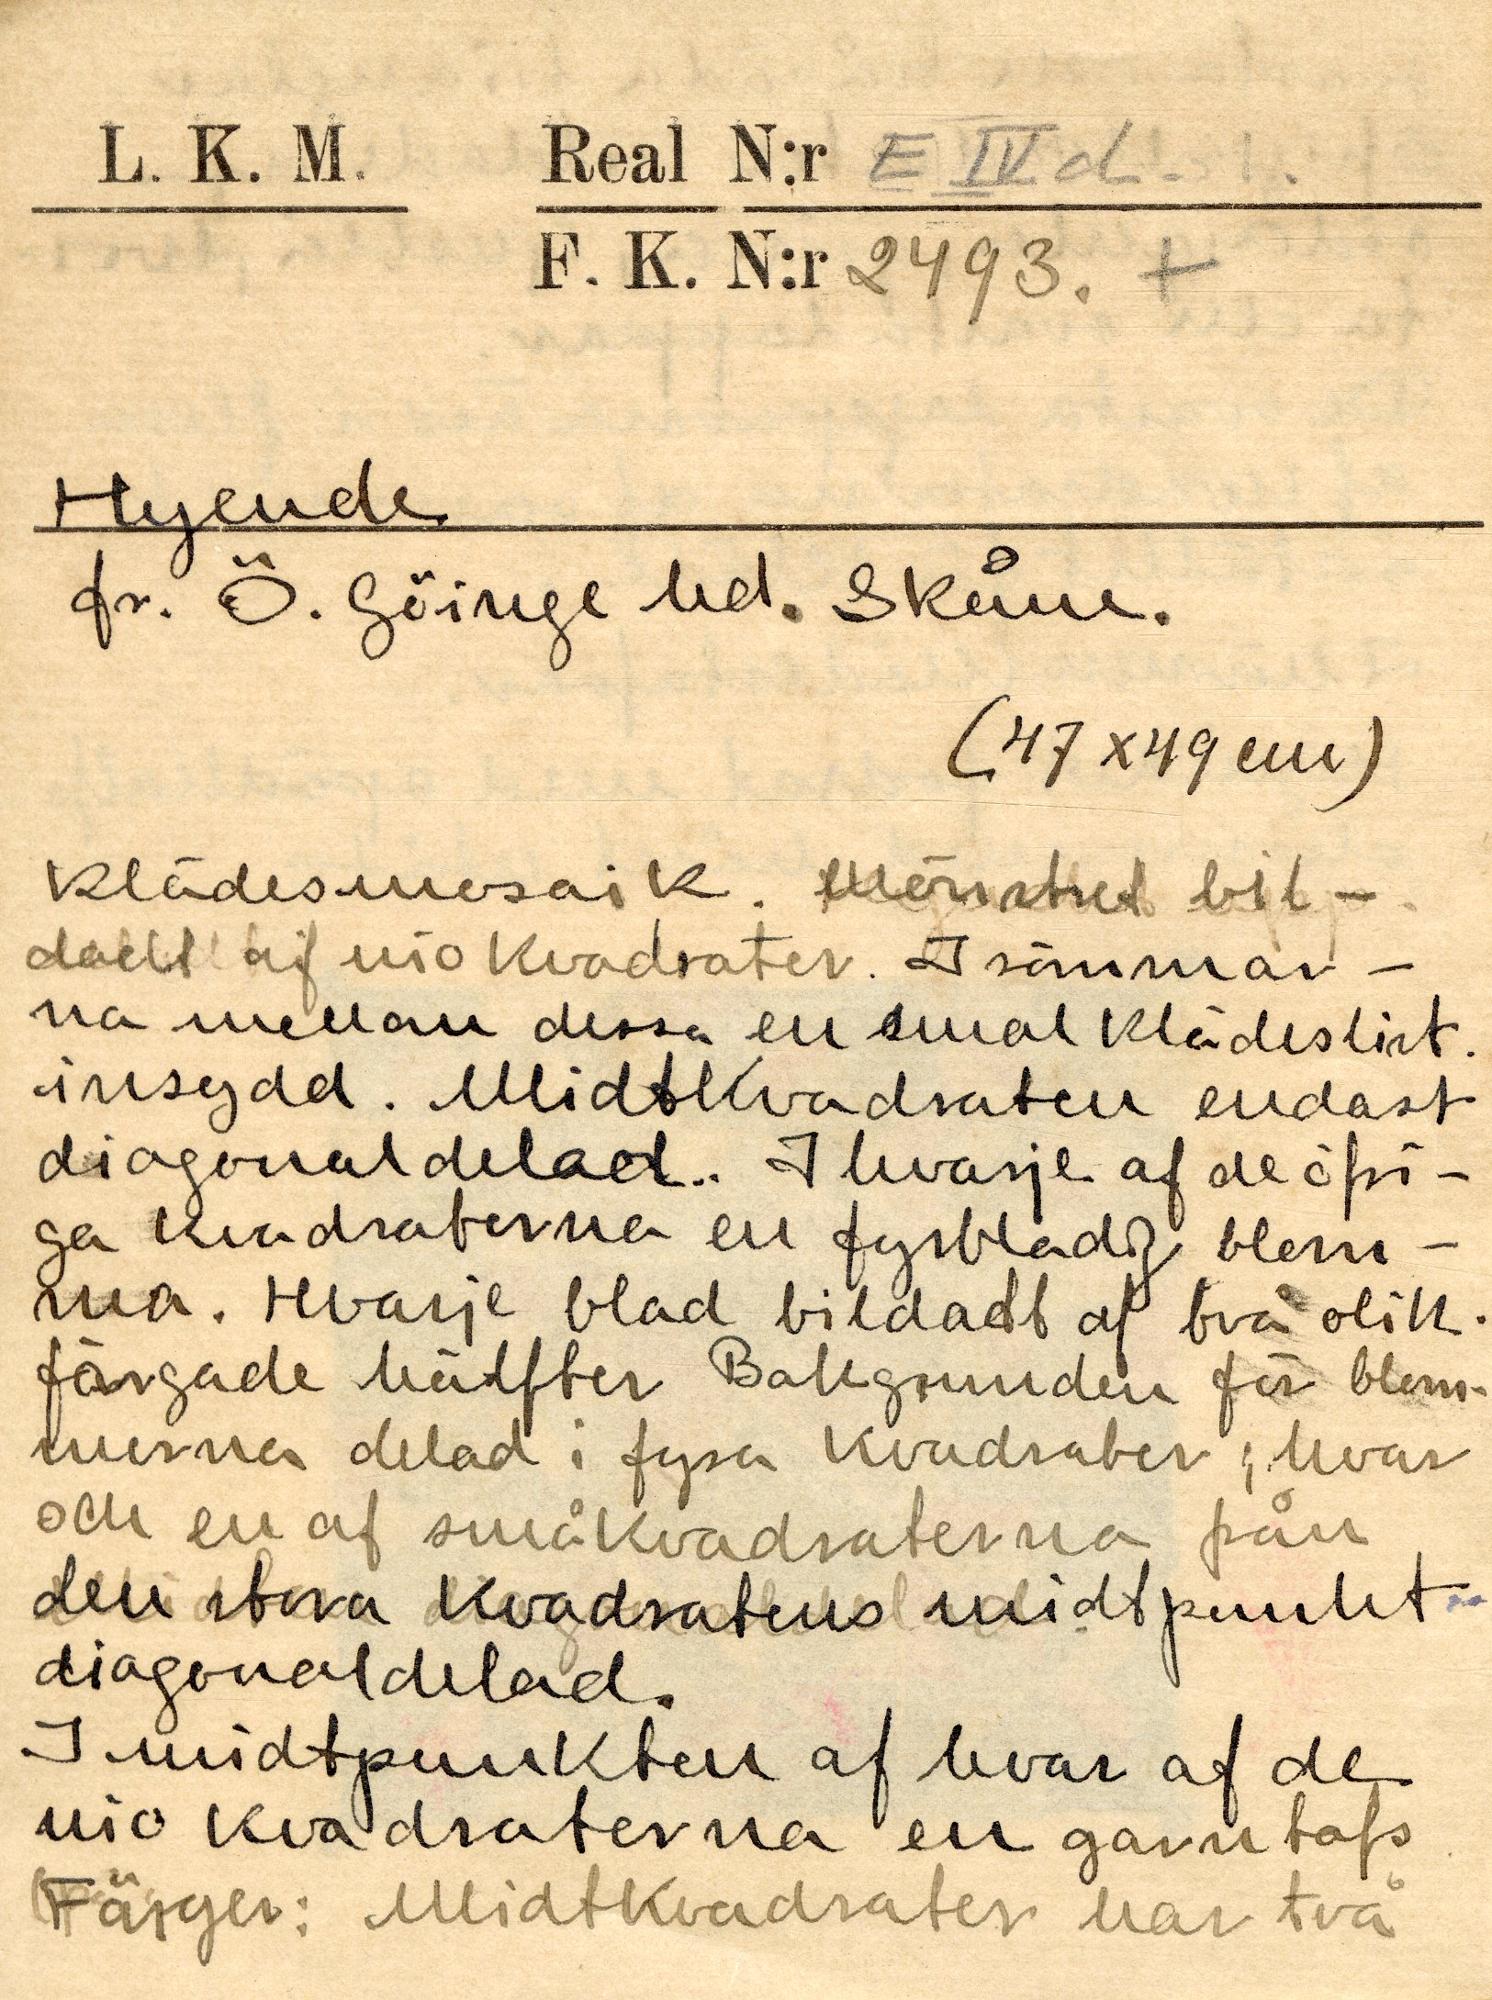 L. K. M. Real N:r E IV d. 1.
F. K. N:r 2493. +
Hyende
fr. Ö. Göinge hd. Skåne.
(47 x 49 cm)
Klädesmosaik. Mönstret bil-
dadt af nio kvadrater. I sömmar-
na mellan dessa en smal klädeslist.
insydd. Midtkvadraten endast
diagonaldelad. I hvarje af de öfri-
ga kvadraterna en fyrbladig blom-
ma. Hvarje blad bildadt af två olik-
färgade hälfter Bakgrunden för blom-
morna delad i fyra kvadrater; hvar
och en af småkvadraterna från
den stora kvadratens midtpunkt
diagonaldelad.
I midtpunkten af hvar af de
nio kvadraterna en garntofs
Färger: Midtkvadraten har två